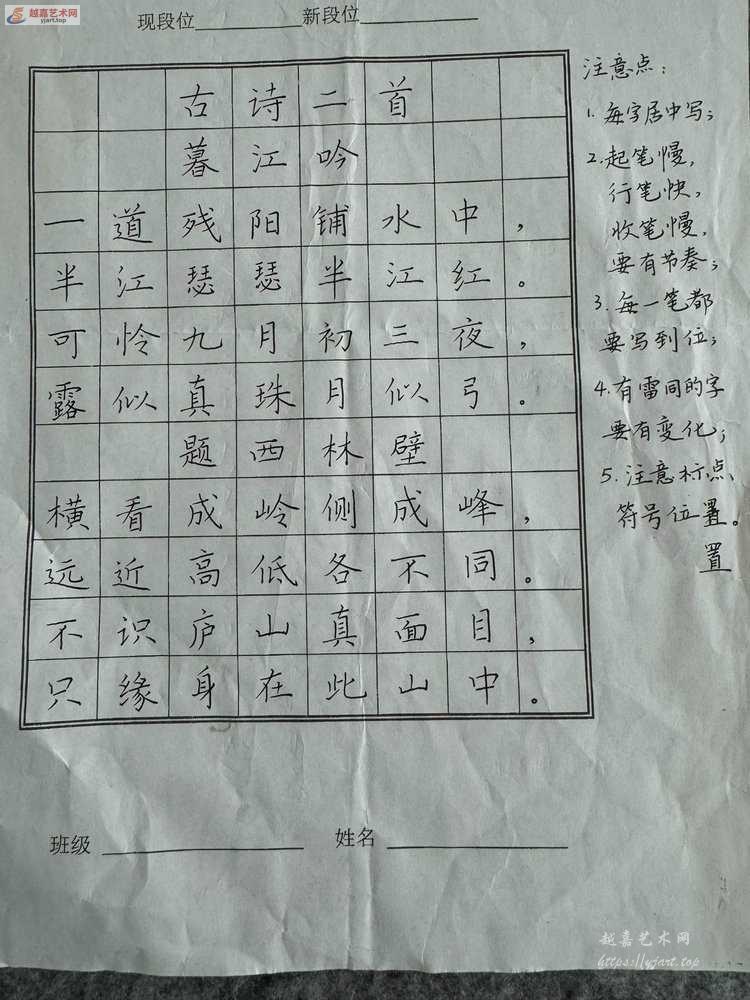 越嘉艺术网
yjart.top
现段位 新段位
古诗二首
暮江吟
一道残阳铺水中，
半江瑟瑟半江红。
可怜九月初三夜，
露似真珠月似弓。
题西林壁
横看成岭侧成峰，
远近高低各不同。
不识庐山真面目，
只缘身在此山中。
注意点：
1. 每字居中写；
2. 起笔慢，
行笔快，
收笔慢，
要有节奏；
3. 每一笔都
要写到位；
4. 有雷同的字
要有变化；
5. 注意标点、
符号位置。
置
班级 姓名
越嘉艺术网
https://yjart.top